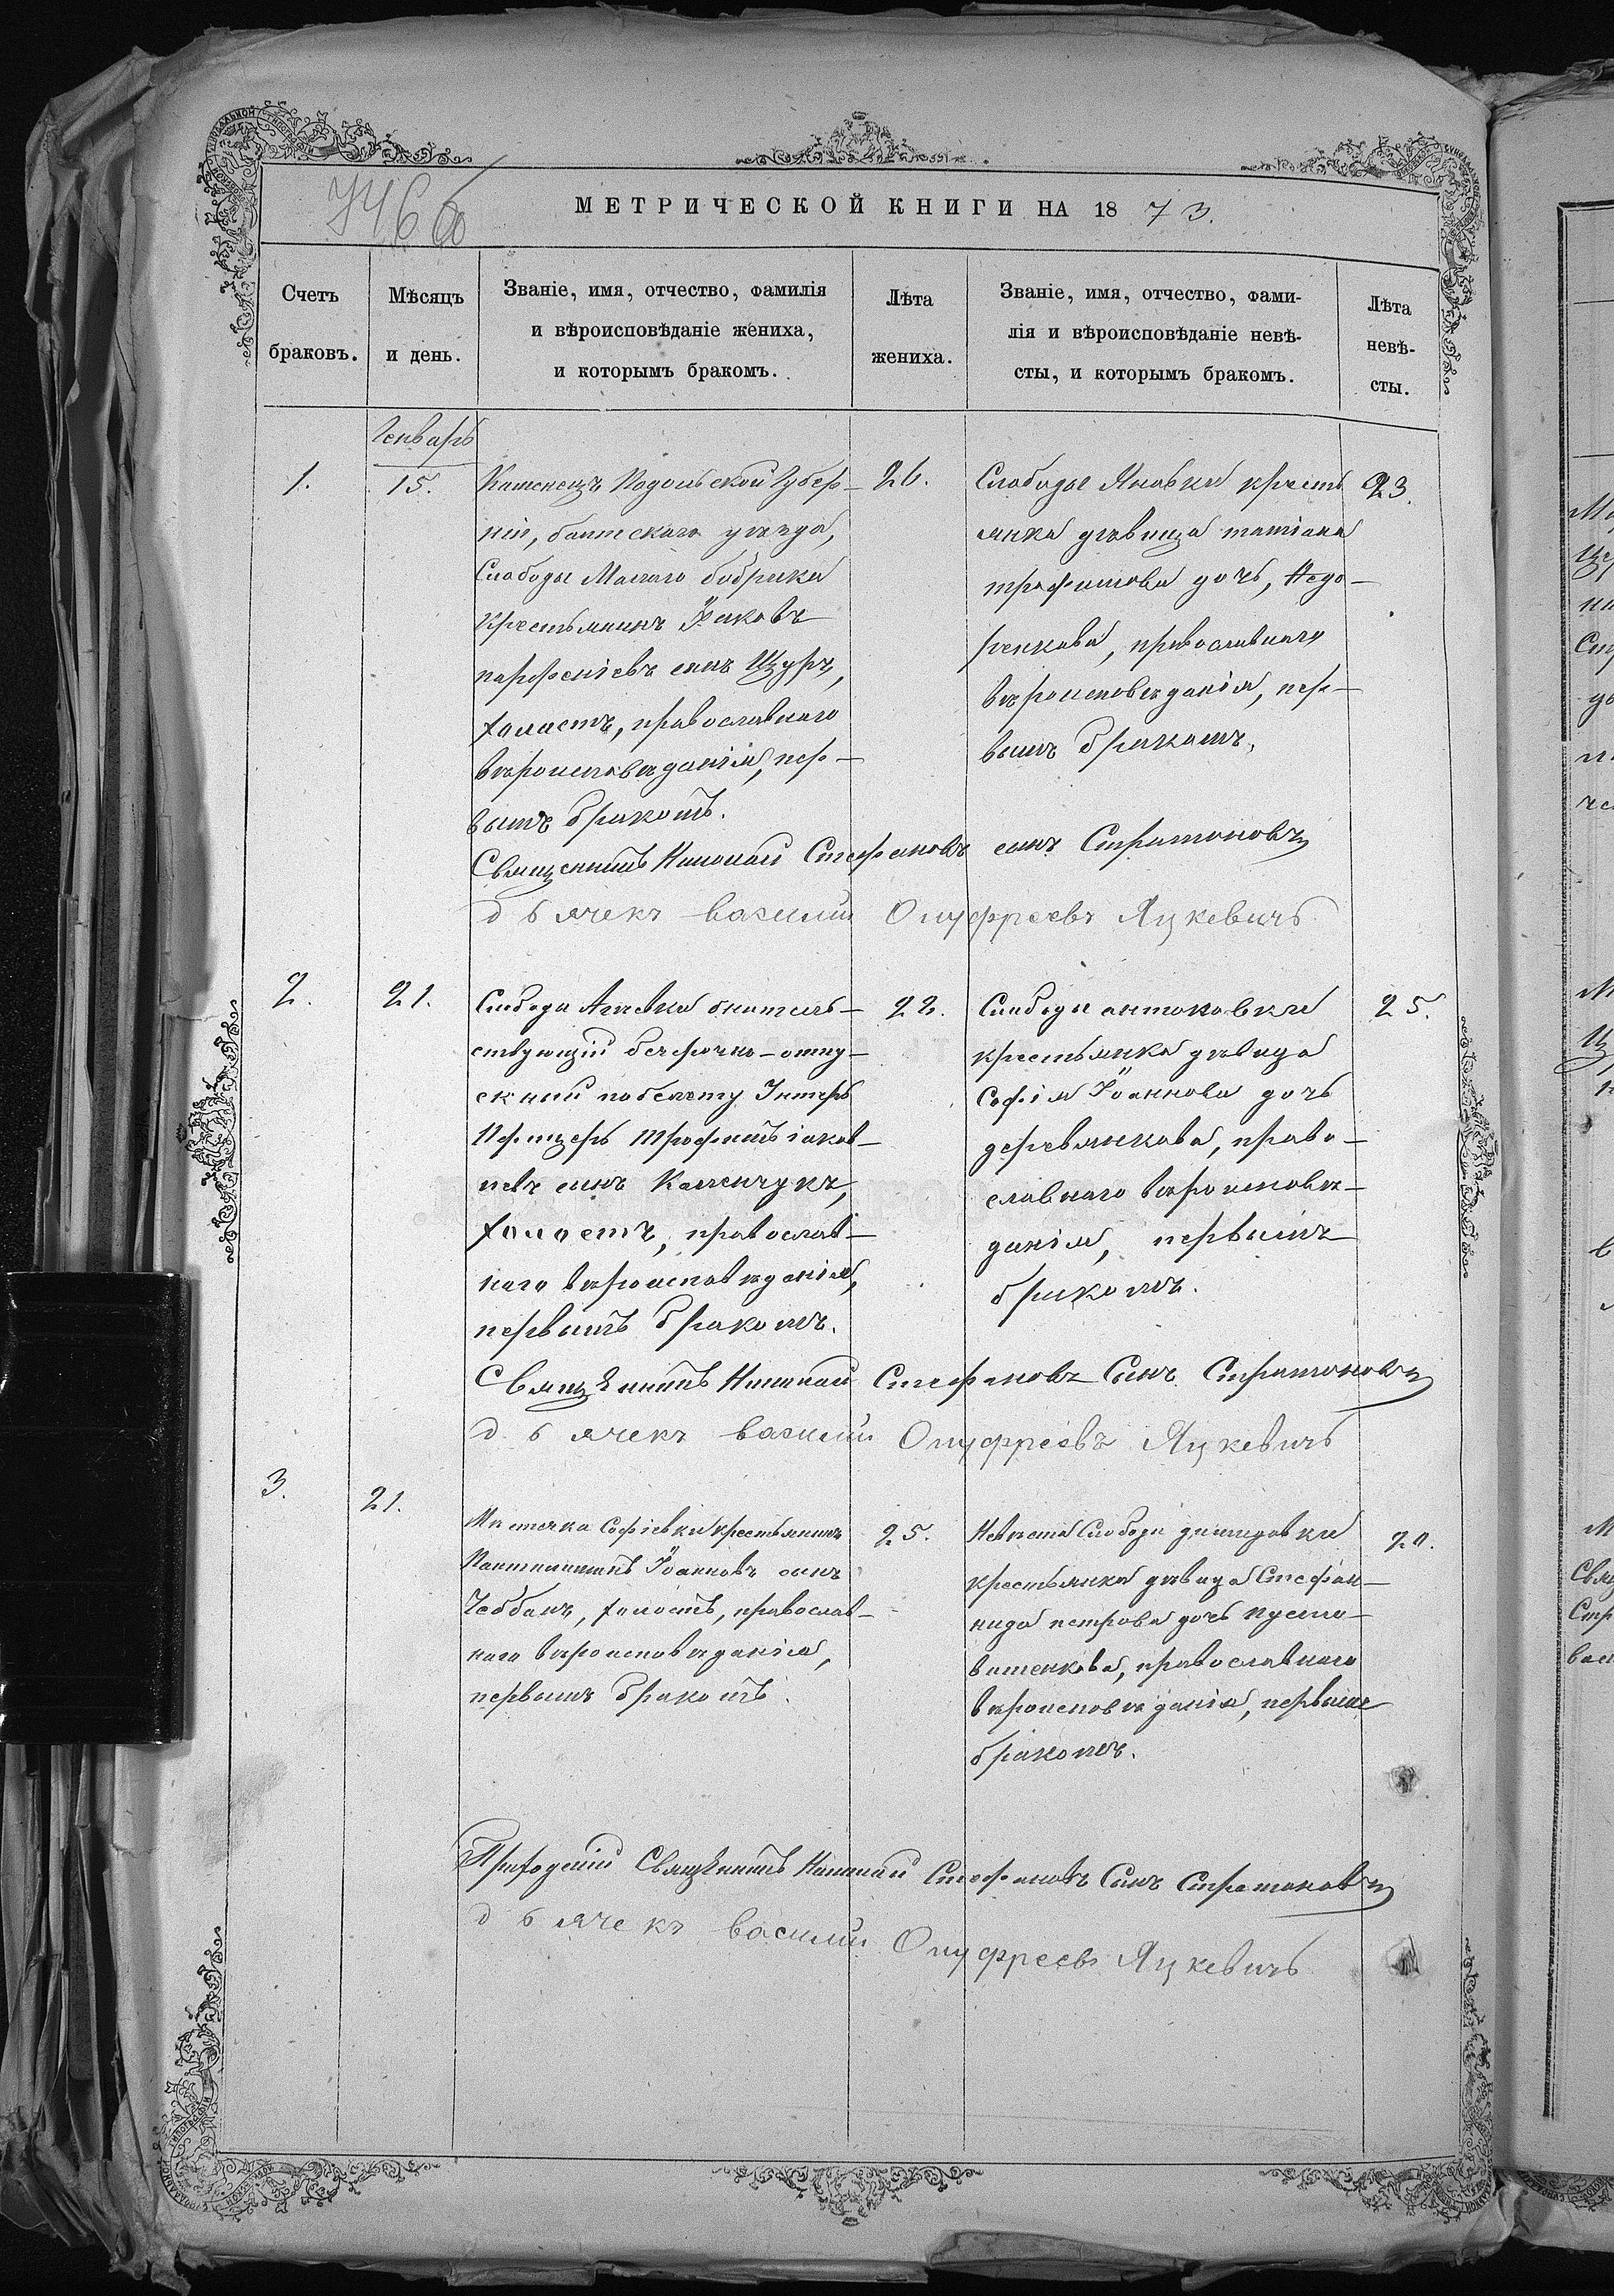 746 об
МЕТРИЧЕСКОЙ КНИГИ НА 18 73.
Счетъ браковъ.
Мѣсяцъ и день.
Званіе, имя, отчество, фамилія
и вѣроисповѣданіе жениха,
и которымъ бракомъ.
Лѣта жениха.
Званіе, имя, отчество, фами-
лія и вѣроисповѣданіе невѣ-
сты, и которымъ бракомъ.
Лѣта
невѣ-
сты.
Генварь
1.
15.
Каменецъ Подольской Губер-
ніи, балтскаго уѣзда,
Слободы Малаго бобрика
Крестьянинъ Іяковъ
парфеніевъ сынъ Щуръ,
холастъ, православнаго
вѣроисповѣданія, пер-
вымъ бракомъ.
26.
Слободы Яновки кресть
янка дѣвица татіана
трофимова дочь, Недо-
ренкова, православнаго
вѣроисповѣданія, пер-
вымъ бракомъ.
23.
Священникъ Николай Стефановъ сынъ Стратоновъ
дьячекъ василий Онуфреевъ Яцкевичъ
2.
21.
Слободы
ствующій безсрочно-отпу-
скний по билету Унтеръ
Офицеръ трофимъ іаков-
левъ сынъ
холостъ, православ-
наго вѣроисповѣданія,
первымъ бракомъ.
22.
Слободы антоновки
крестьянка дѣвица
Софія Іоаннова дочь
деревянкова, право-
славнаго вѣроисповѣ-
данія, первымъ
бракомъ.
25.
Священникъ Николай Стефановъ Сынъ Стратоновъ
дьячекъ василий Онуфреевъ Яцкевичъ
3.
21.
Мѣстечка Софіевки крестьянинъ
Пантилимонъ Іоанновъ сынъ
Чеббанъ, холостъ, православ-
наго вѣроисповѣданія,
первымъ бракомъ.
25.
Невѣста Слободы демидовки
крестьянка дѣвица Стефан-
нида петрова дочь пусто-
витенкова, православнаго
вѣроисповѣданія, первымъ
бракомъ.
20.
Приходскій Священникъ Николай Стефановъ Сынъ Стратоновъ
дьячекъ василий Онуфреевъ Яцкевичъ